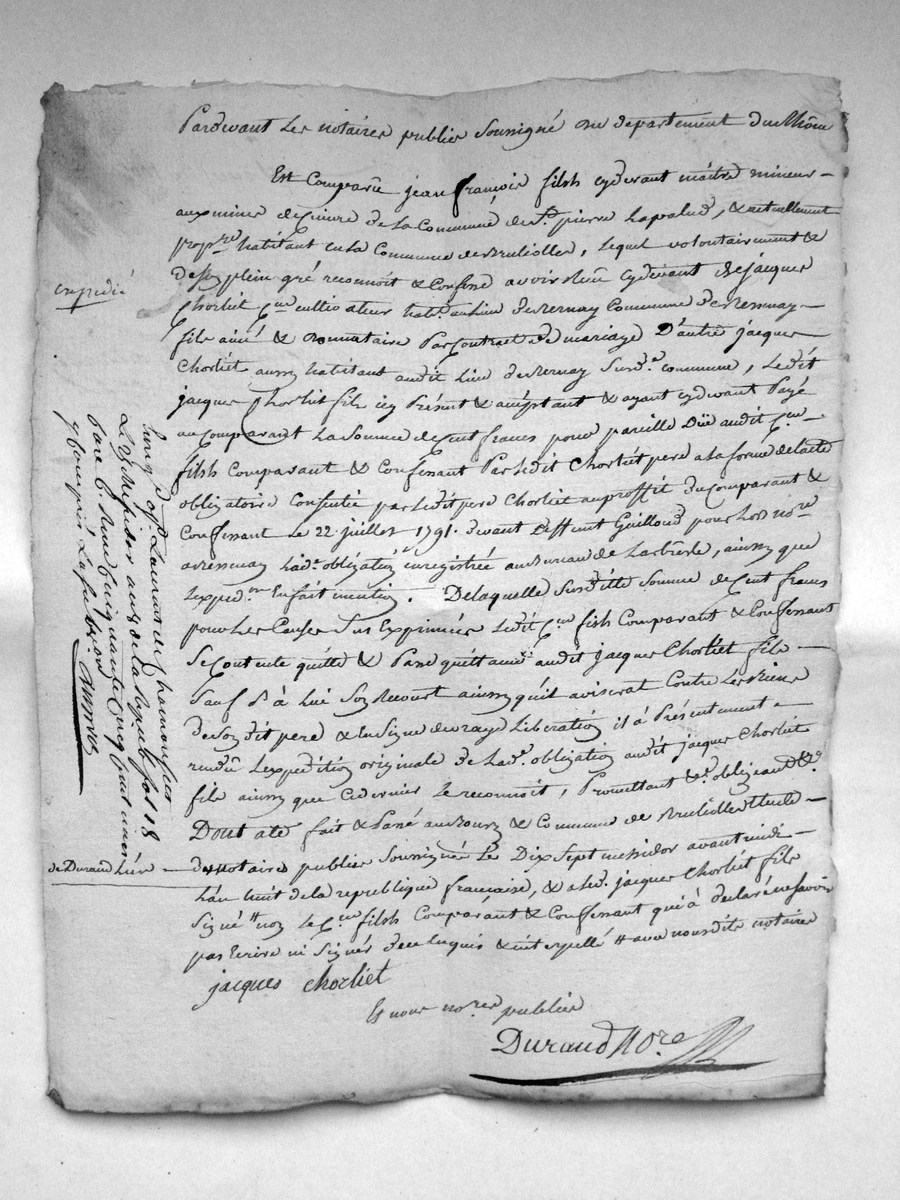 Pardevant les notaires publics soussigné du departement du Rhône
Est Comparû jean françois filsh cydevant maitre mineur
aux mines de Cuivre de la Commune de St. pierre lapalud, & actuellement
prop.re habitant en la Commune de Brulliolles, lequel volontairement &
de son plein gré reconnoit & Confesse avoir Reçu cydevant de jacques
Chorliet C.en cultivateur hab.t au lieu de Ressuay Commune de
fils ainé & donnataire par Contract de mariage D'autre jacques
Chorliet aussy habitant audit lieu de Susd.e commune, ledit
jacques Chorliet fils icy Présent & acceptant & ayant cydevant Payé
au Comparant La Somme de Cent francs pour pareille Düe audit C.en
filsh Comparant & Confessant Par ledit Chorliet pere a la forme de l'acte
obligatoire Consentie par ledit pere Chorliet au proffit du Comparant &
Confessant Le 22 juillet 1791. devant Deffunt Guilloud pour Lors no.re
a ressuay Lad.e obligation enregistrée au Bureau de Larbresle, ainsy que
L'exped.on en fait mention. De laquelle Susditte Somme de Cent francs
pour les Causes Sus Exprimées ledit C.en filsh Comparant & Confessant
Se Contente quitte & Passe quittance audit jacques Chorliet fils
Sauf à Lui Son Recourt ainsy qu'il aviserat Contre les Biens
de Son dit pere & en Signe de vraye Liberation il à Présentement
rendû L'expedition originale de Lad.e obligation audit jacques Chorliet
fils ainsy que Ce dernier le reconnoit, Promettant & obligeand &
Dont acte fait & Passé au Bourg & Commune de Brulliolles
de notaire public Soussigné Le Dix Sept messidor avant midi
L'an huit de la republique francaise, & a led. jacques Chorliet fils
Signé non le C.en filsh Comparant & Confessant qui à declaré ne Savoir
pas Ecrire ni Signer de ce enquis & interpellé avec nous dits notaire
jacques Chorliet
Et nous no.res publics
Durand No.re
expedié
de Durand